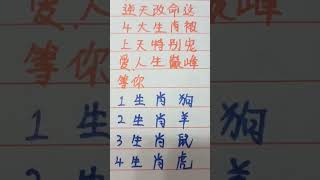 逆天改命这
4大生肖被
上天特别宠
爱,人生巅峰
等你
1生肖狗
2生肖羊
3生肖鼠
4生肖虎